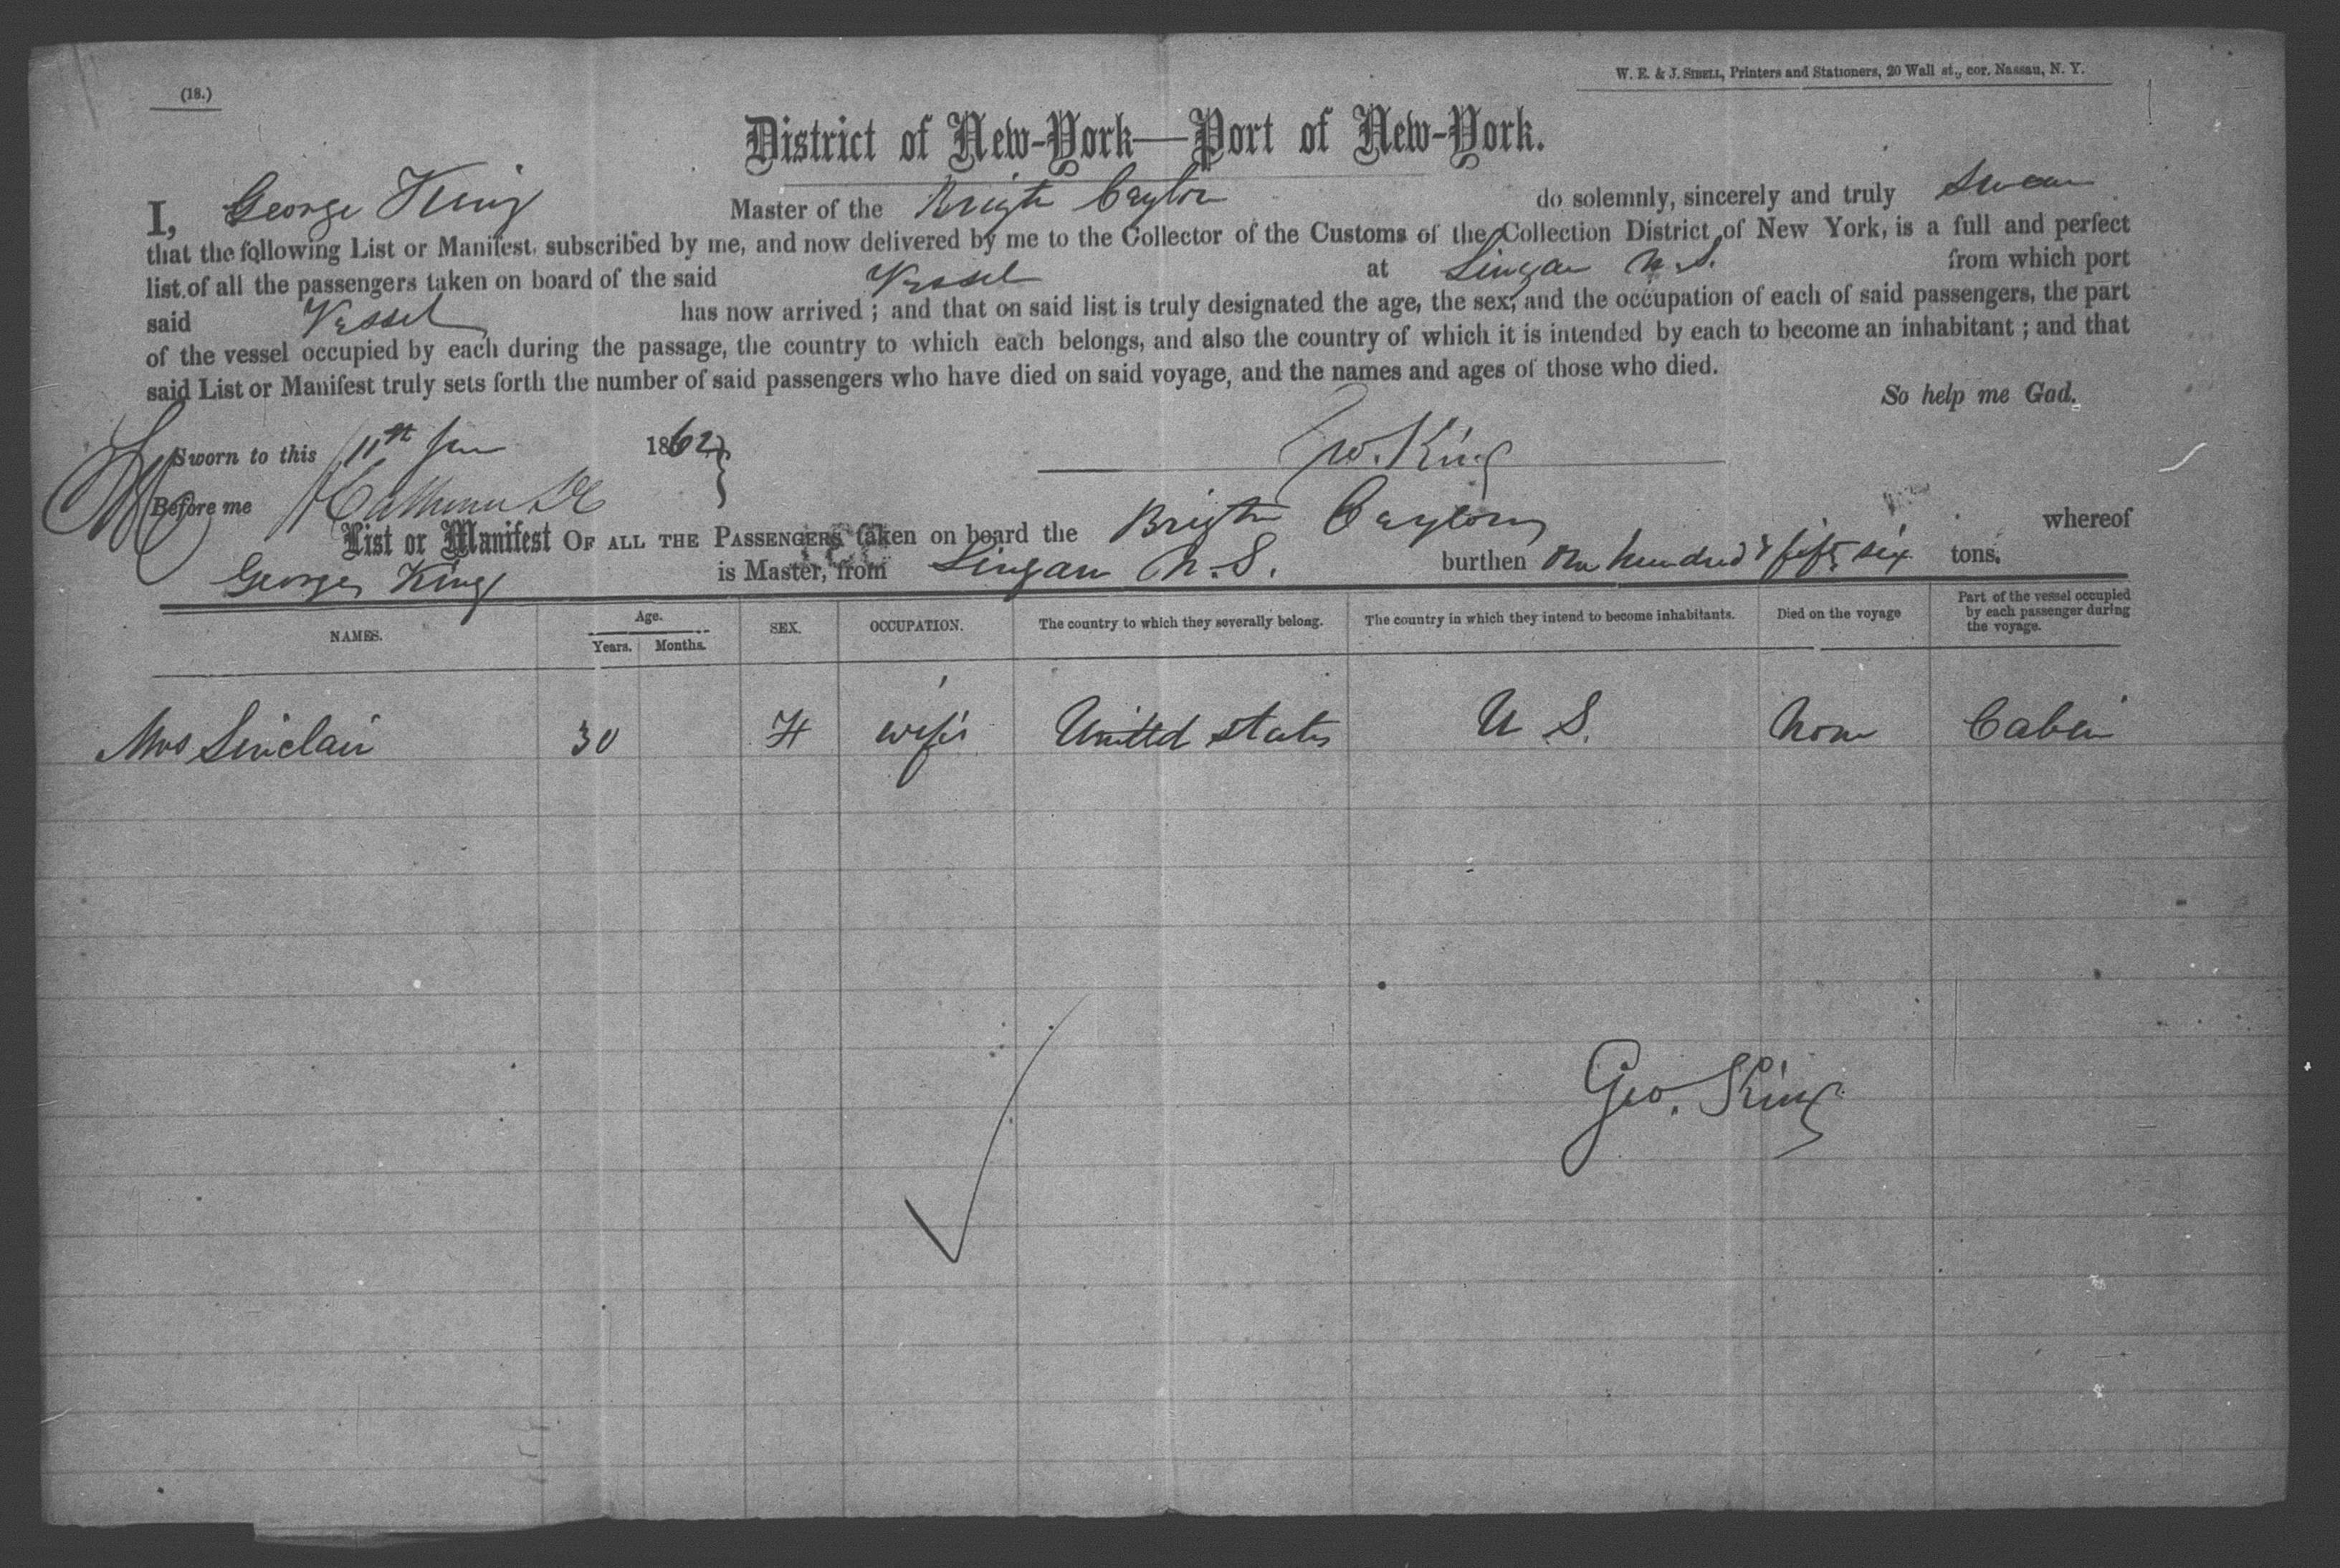 (18.)
W. E. & J. SIBELL, Printers and Stationers, 20 Wall st., cor. Nassau, N. Y.
District of New-York—Port of New-York.
I, George King Master of the Brigtn Ceylon do solemnly, sincerely and truly Swear
that the following List or Manifest, subscribed by me, and now delivered by me to the Collector of the Customs of the Collection District of New York, is a full and perfect
list of all the passengers taken on board of the said Vessel at Lingan N.S. from which port
said Vessel has now arrived ; and that on said list is truly designated the age, the sex, and the occupation of each of said passengers, the part
of the vessel occupied by each during the passage, the country to which each belongs, and also the country of which it is intended by each to become an inhabitant ; and that
said List or Manifest truly sets forth the number of said passengers who have died on said voyage, and the names and ages of those who died.
So help me God.
Sworn to this 11th 1862 } King
Before me
List or Manifest OF ALL THE PASSENGERS taken on board the Brigtn Ceylon whereof
George King is Master, from Lingan N.S. burthen One hundred & fifty six tons.
NAMES. Age. Years. Months. SEX. OCCUPATION. The country to which they severally belong. The country in which they intend to become inhabitants. Died on the voyage Part of the vessel occupied by each passenger during the voyage.
Mrs Sinclair 30 F wife United States U S. None Cabin
Geo. King